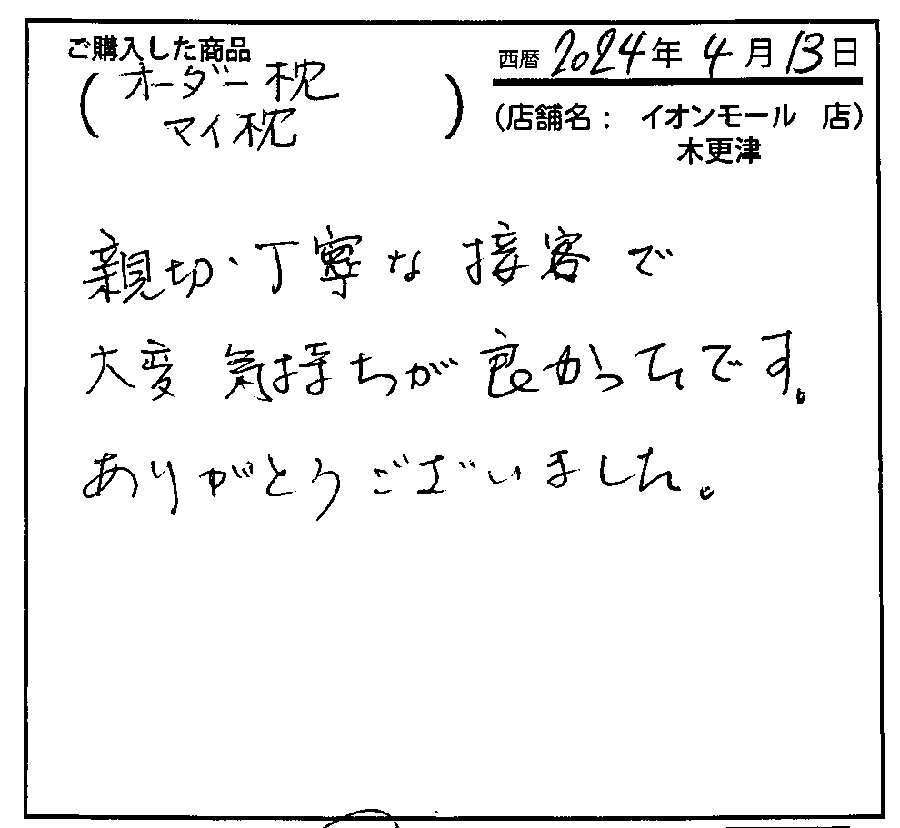 ご購入した商品
(オーダー枕
マイ枕)
西暦 2024年 4月 13日
(店舗名: イオンモール 店)
木更津
親切・丁寧な接客で
大変気持ちが良かったです。
ありがとうございました。